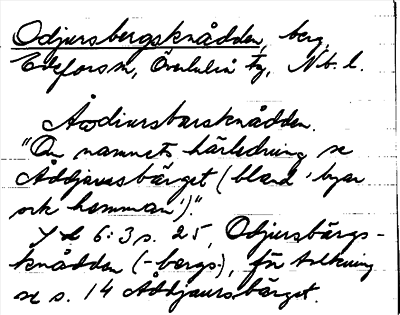 Odjursbergsknådden, berg,
Edefors sn, Överluleå tg, Nb. l.
Åwdiursbarsknådden.
"Om namnets härledning se
Åddjaursbärget (bland 'byar
ock hemman')".
6:3 s. 25, Odjursbärgs-
knådden (-bergs-), för tolkning
se s. 14 Åddjaursbärget.